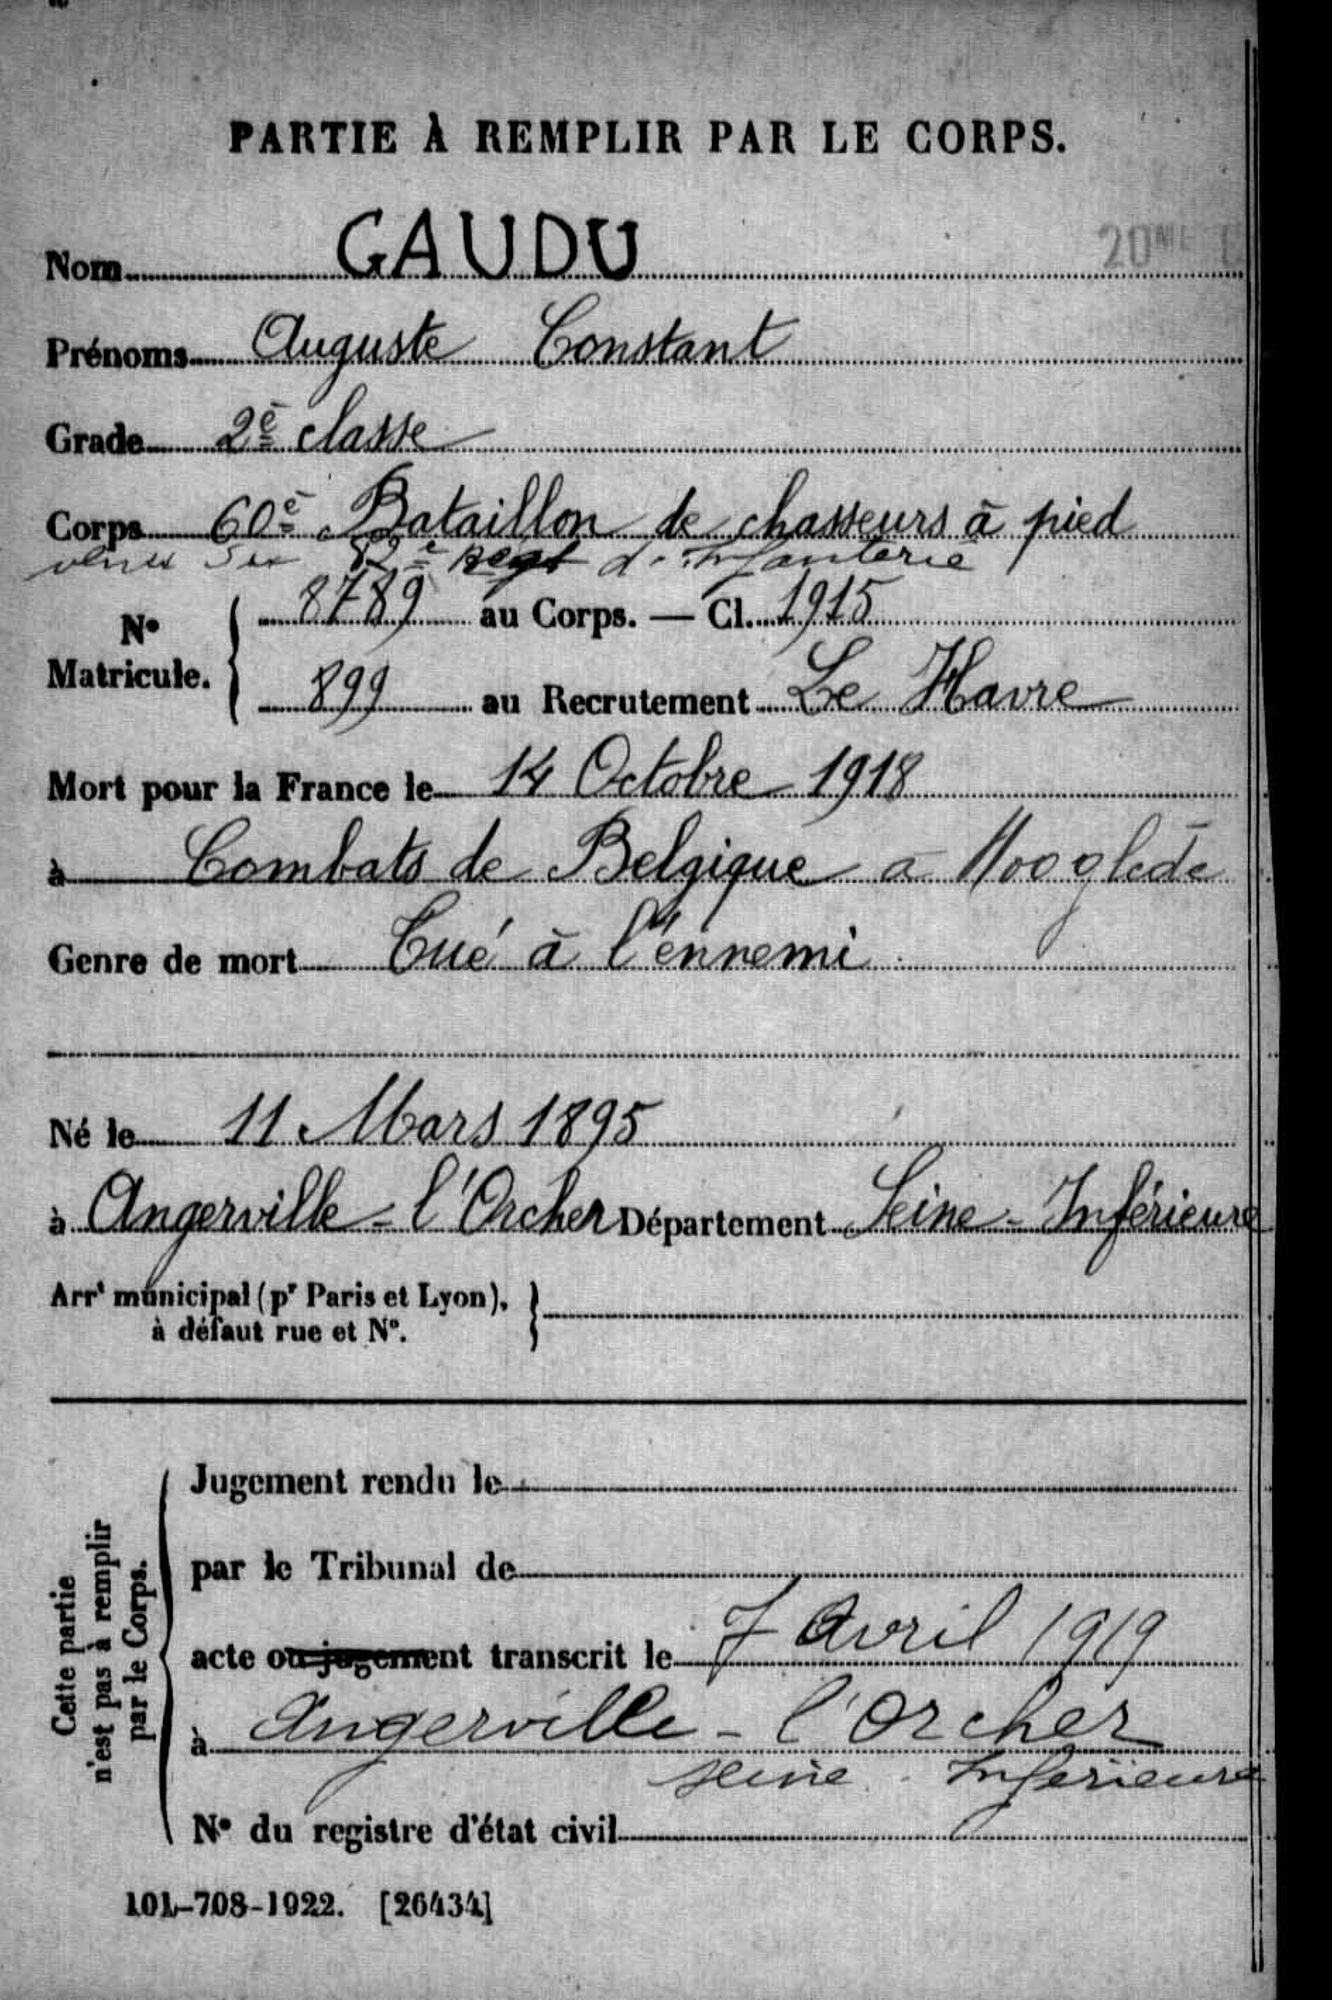 PARTIE À REMPLIR PAR LE CORPS.
20ME
Nom GAUDU
Prénoms Auguste Constant
Grade 2è classe
Corps 60è Bataillon de chasseurs à pied
82e Regt d'Infanterie
No Matricule. 8789 au Corps. — Cl. 1915
899 au Recrutement Le Havre
Mort pour la France le 14 Octobre 1918
à Combats de Belgique à Hooglède
Genre de mort Tué à l'ennemi
Né le 11 Mars 1895
à Angerville-l'Orcher Département Seine-Inférieure
Arrt municipal (pr Paris et Lyon),
à défaut rue et No.
Cette partie
n'est pas à remplir
par le Corps.
Jugement rendu le
par le Tribunal de
acte ou jugement transcrit le 7 Avril 1919
à Angerville-l'Orcher
Seine-Inférieure
No du registre d'état civil
101-708-1922. [26434]